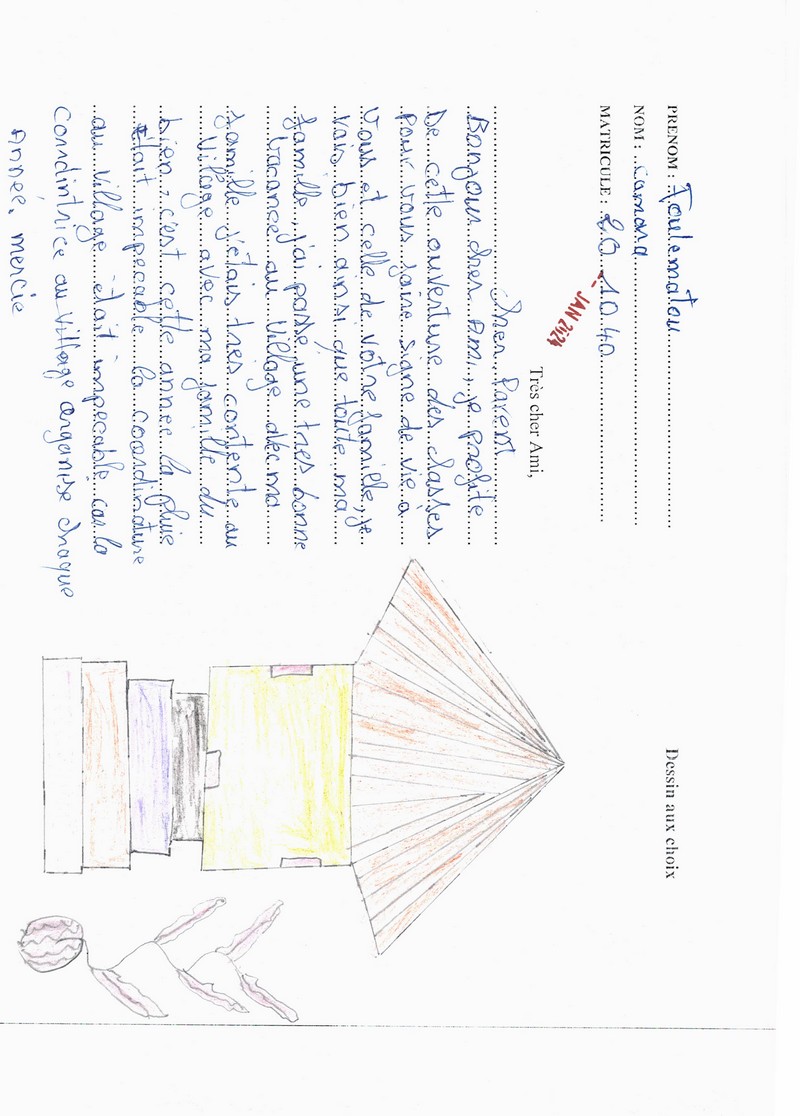 PRENOM : Foulematou
NOM : camara
MATRICULE : 20 1040
- JAN 2024
Très cher Ami,
cher Parent
Bonjour cher Ami, je profite
De cette ouverture des classes
pour vous faire signe de vie à
Vous et celle de votre famille, je
vais bien ainsi que toute ma
famille, j'ai passé une tres bonne
vacance au village avec ma
famille j'étais tres contente au
village avec ma famille du
bien, c'est cette annee la pluie
était impecable la coordinature
au village était impecable car la
Coordintrice au village organise chaque
Année. mercie
Dessin aux choix